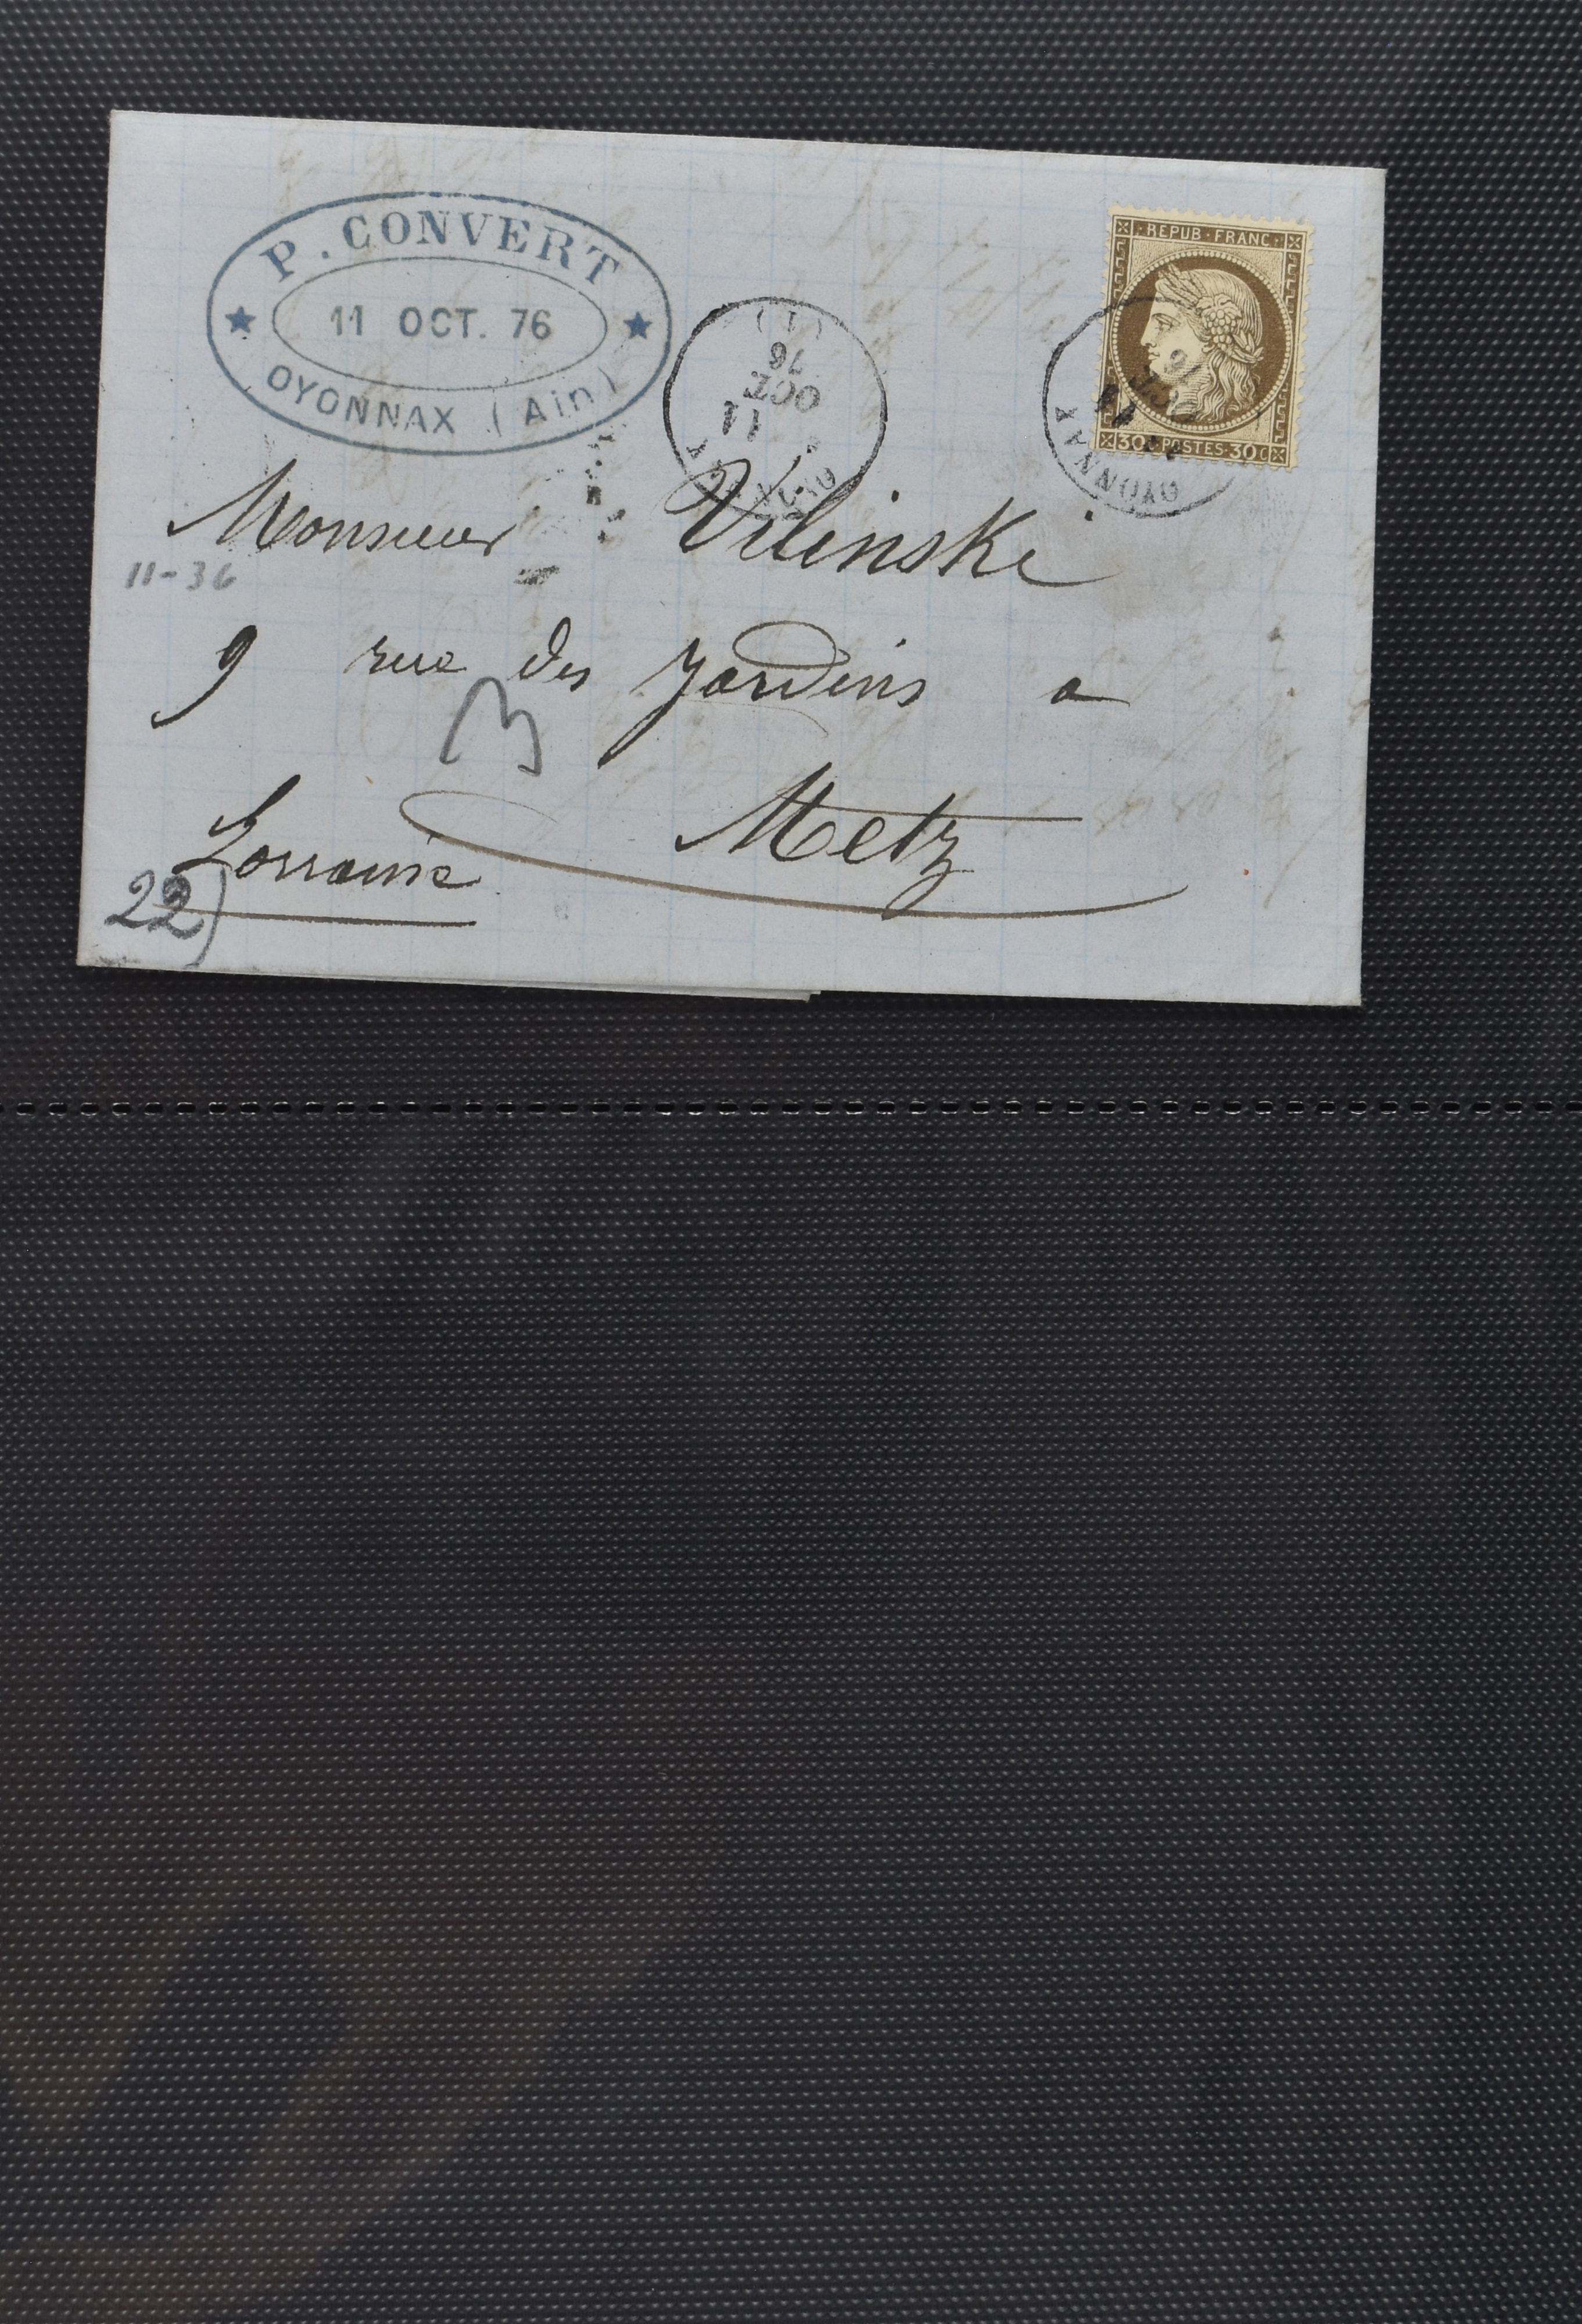 P. CONVERT
11 OCT. 76
OYONNAX (Ain)
(1)
76
OCT
11
REPUB·FRANC·
30 C POSTES·30 C
OYONNAX
Monsieur Vilinski
11-36
9 rue des Jardins a
Metz
Lorraine
22)